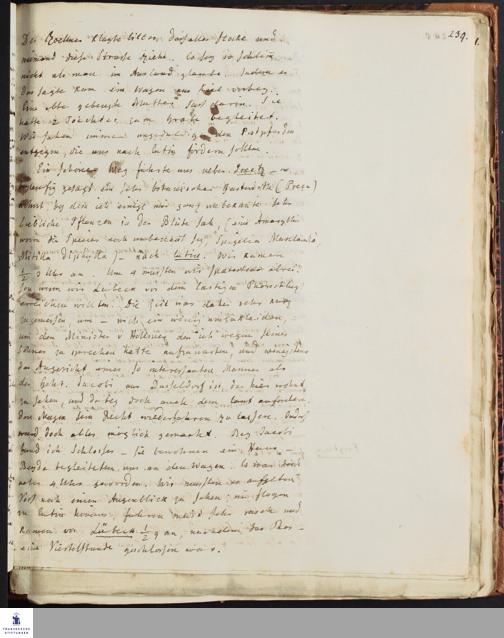 239. 1.
Der Zoellner klagte bitter, dass alles stocke und
niemand diese Strasse ziehe. Es sey so schlimm
nicht als man im Ausland glaubte. Indem er
das sagte kam ein Wagen aus Kiel vorbey.
Eine alte gebeugte Mutter sass darin. Sie
hatte 2 Töchter zum Grabe begleitet.
Wir sahen immer ungeduldig den Postpferden
entgegen, die uns nach Eutin fördern sollten
Ein schöner Weg führte uns neben Preetz
gesagt ein sehr botanischer Gastwirth (Preen)
wohnt bey dem ich einige mir ganz unbekannte sehr
liebliche Pflanzen in der Blüthe sah, (eine Amaryllis
worin die Species noch unbekannt sey, Spigelia Marilandica,
Mitella diphylla) – nach Eutin. Wir kamen
½ 3 Uhr an. Um 4 mussten wir spaetestens abrei
sen wenn wir Lübeck vor dem lästigen Thorschluss
erreichen wollten. Die Zeit war daher sehr
zugemessen um – mich ein wenig umzukleiden,
um den Minister v Holmer den ich wegen seines
Sohnes zu sprechen hatte aufzuwarten, und wenigstens
das Angesicht eines so interessanten Mannes als
der Geh. Jacobi aus Düsseldorf ist, der hier wohnt
zu sehen, und dabey doch auch dem laut auffordern
den Magen sein Recht wiederfahren zu lassen. Indess
ward doch alles möglich gemacht. Bey Jacobi
fand ich Schlosser – Sie bewohnen ein Haus –
Beyde begleiteten uns an den Wagen. Es war schon
4 Uhr geworden. Wir mussten es aufgeben
Voss noch einen Augenblick zu sehen; wir flogen
zu Eutin hinaus, fuhren meist sehr rasch und
kamen vor Lübeck ½ 9 an, nachdem das Thor
eine Viertelstunde geschlossen war.
FRANCKESCHE
STIFTUNGEN